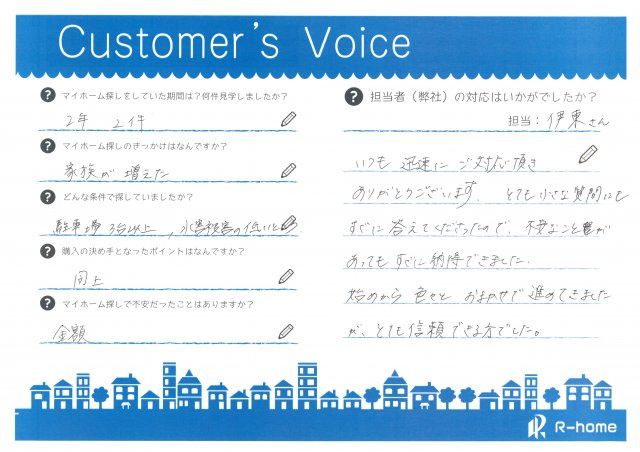 Customer's Voice
? マイホーム探しをしていた期間は?何件見学しましたか?
2年 2件
? マイホーム探しのきっかけはなんですか?
家族が 増えた
? どんな条件で探していましたか?
駐車場 3台以上、水害被害の低いところ
? 購入の決め手となったポイントはなんですか?
同上
? マイホーム探しで不安だったことはありますか?
金額
? 担当者(弊社)の対応はいかがでしたか?
担当:伊東さん
いつも 迅速に ご対応頂き
ありがとうございます。とても小さな質問にも
すぐに答えてくださったので、不安なこと が
あっても すぐに納得できました。
始めから 色々と おまかせで進めてきました
が、とても信頼できる方でした。
R-home